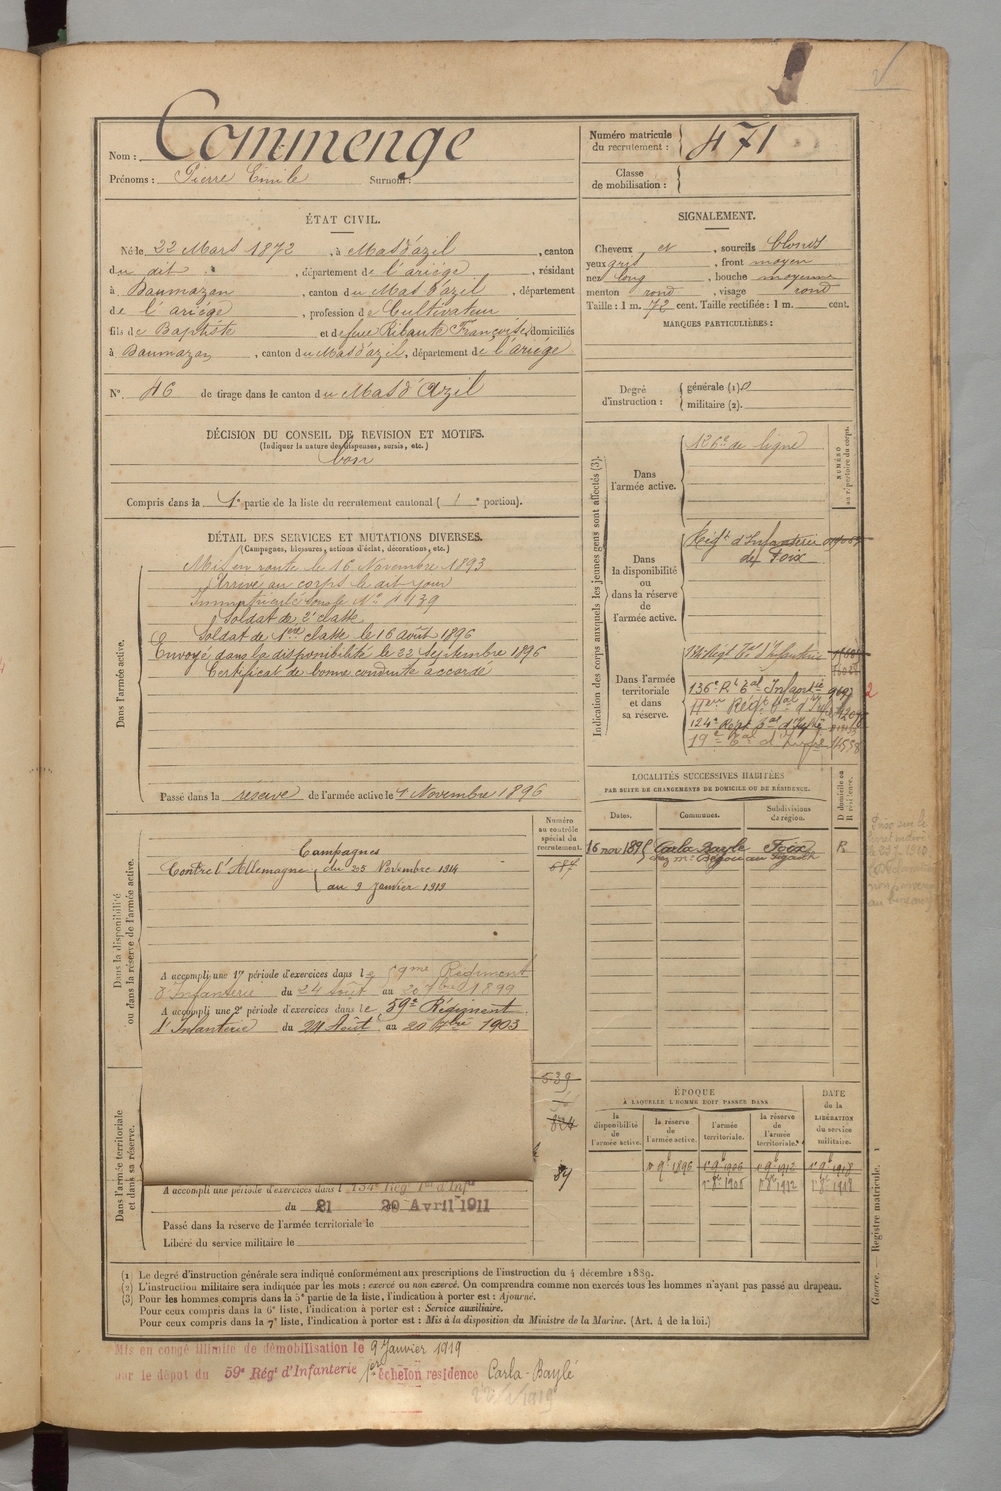 Nom : Commenge
Prénoms : Pierre Emile Surnom :
Numéro matricule du recrutement : 471
Classe de mobilisation :
ÉTAT CIVIL.
Né le 22 Mars 1872, à Mas d'azil, canton
du dit, département de l'ariége, résidant
à Daumazan, canton du Mas d'azil, département
de l'ariége, profession de Cultivateur
fils de Baptiste et de feue Ribaute Françoise, domiciliés
à Daumazan, canton du Mas d'azil, département de l'ariége
N° 46 de tirage dans le canton du Mas d'Azil
SIGNALEMENT.
Cheveux et, sourcils blonds
yeux gris, front moyen
nez long, bouche moyenne
menton rond, visage rond
Taille : 1 m. 72 cent. Taille rectifiée : 1 m. cent.
MARQUES PARTICULIÈRES :
Degré d'instruction :
générale (1)
militaire (2).
DÉCISION DU CONSEIL DE REVISION ET MOTIFS.
(Indiquer la nature des dispenses, sursis, etc.)
bon
Compris dans la 1e partie de la liste du recrutement cantonal ( 1e portion).
DÉTAIL DES SERVICES ET MUTATIONS DIVERSES.
(Campagnes, blessures, actions d'éclat, décorations, etc.)
Dans l'armée active.
Mis en route le 16 Novembre 1893
Arrivé au corps le dit jour
Immatriculé sous le N° 4439
Soldat de 2e classe
Soldat de 1ere classe le 16 août 1896
Envoyé dans la disponibilité le 22 Septembre 1896
Certificat de bonne conduite accordé
Passé dans la réserve de l'armée active le 1 Novembre 1896
Indication des corps auxquels les jeunes gens sont affectés (3).
NUMÉRO au répertoire du corps.
Dans l'armée active.
126e de ligne
Dans la disponibilité ou dans la réserve de l'armée active.
Régt d'Infanterie
de Foix
Dans l'armée territoriale et dans sa réserve.
134 Régt Tal d'Infanterie
136e Rt Tal Infantie
Régt Tal d'Infie
124e Régt Tal d'Infie
19e Tal d'Infie
2
LOCALITÉS SUCCESSIVES HABITÉES
PAR SUITE DE CHANGEMENTS DE DOMICILE OU DE RÉSIDENCE.
Dates. Communes. Subdivisions de région. D domicile ou R résidence.
Carla Bayle Foix R
Dans la disponibilité ou dans la réserve de l'armée active.
Numéro au contrôle spécial du recrutement.
687
Campagnes
Contre l'Allemagne du 25 Novembre 1914
au 9 Janvier 1919
A accompli une 1re période d'exercices dans le 59me Régiment
d'Infanterie du 24 Août au 20 7bre 1899
A accompli une 2e période d'exercices dans le 59e Régiment
d'Infanterie du 24 Août au 20 7bre 1903
539
84
Dans l'armée territoriale et dans sa réserve.
A accompli une période d'exercices dans l 134e Régt Tal d'Infie
du 21 Avril 1911
Passé dans la réserve de l'armée territoriale le
Libéré du service militaire le
ÉPOQUE
À LAQUELLE L'HOMME DOIT PASSER DANS
la disponibilité de l'armée active.
la réserve de l'armée active.
l'armée territoriale.
la réserve de l'armée territoriale.
DATE de la LIBÉRATION du service militaire.
1er 9b 1896 1er 9b 1906 1er 9b 1912 1er 9b 1918
(1) Le degré d'instruction générale sera indiqué conformément aux prescriptions de l'instruction du 4 décembre 1889.
(2) L'instruction militaire sera indiquée par les mots : exercé ou non exercé. On comprendra comme non exercés tous les hommes n'ayant pas passé au drapeau.
(3) Pour les hommes compris dans la 5e partie de la liste, l'indication à porter est : Ajourné.
Pour ceux compris dans la 6e liste, l'indication à porter est : Service auxiliaire.
Pour ceux compris dans la 7e liste, l'indication à porter est : Mis à la disposition du Ministre de la Marine. (Art. 4 de la loi.)
Guerre. — Registre matricule. 1
Mis en congé illimité de démobilisation le 9 Janvier 1919
par le dépot du 59e Régt d'Infanterie 1er échelon residence Carla-Baylé